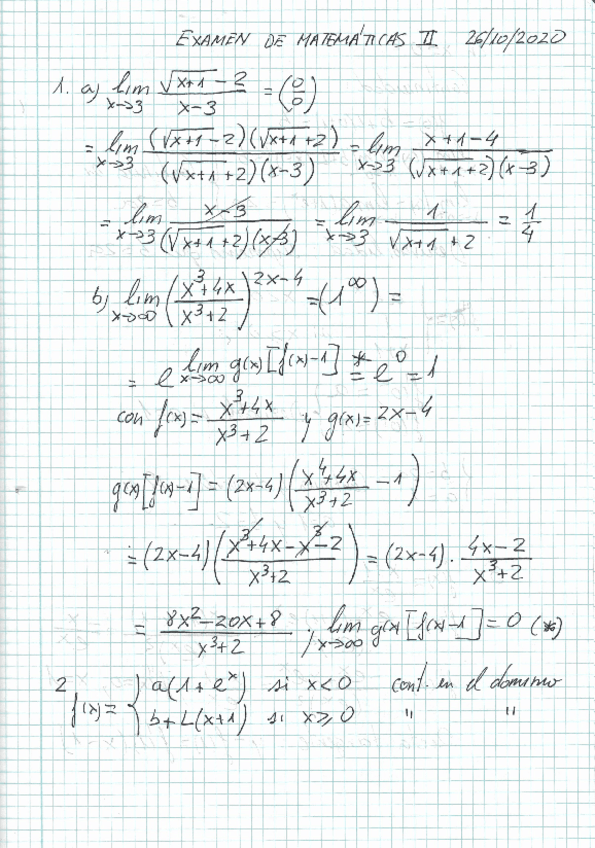 EXAMEN DE MATEMÁTICAS II 26/10/2020
1. a) lim_{x→3} (√(x+1) - 2)/(x-3) = (0/0)
= lim_{x→3} ((√(x+1) - 2)(√(x+1) + 2))/((√(x+1) + 2)(x-3)) = lim_{x→3} (x+1-4)/((√(x+1) + 2)(x-3))
= lim_{x→3} (x-3)/((√(x+1) + 2)(x-3)) = lim_{x→3} 1/(√(x+1) + 2) = 1/4
b) lim_{x→∞} ((x³+4x)/(x³+2))^{2x-4} = (1^∞) =
= e^{lim_{x→∞} g(x)[f(x)-1]} =* e^0 = 1
con f(x) = (x³+4x)/(x³+2) y g(x) = 2x-4
g(x)[f(x)-1] = (2x-4)((x⁴+4x)/(x³+2) - 1)
= (2x-4)((x³+4x-x³-2)/(x³+2)) = (2x-4) · (4x-2)/(x³+2)
= (8x²-20x+8)/(x³+2) ; lim_{x→∞} g(x)[f(x)-1] = 0 (*)
2 f(x) = { a(1+e^x) si x<0 cont. en el dominio
b+L(x+1) si x⩾0 " "